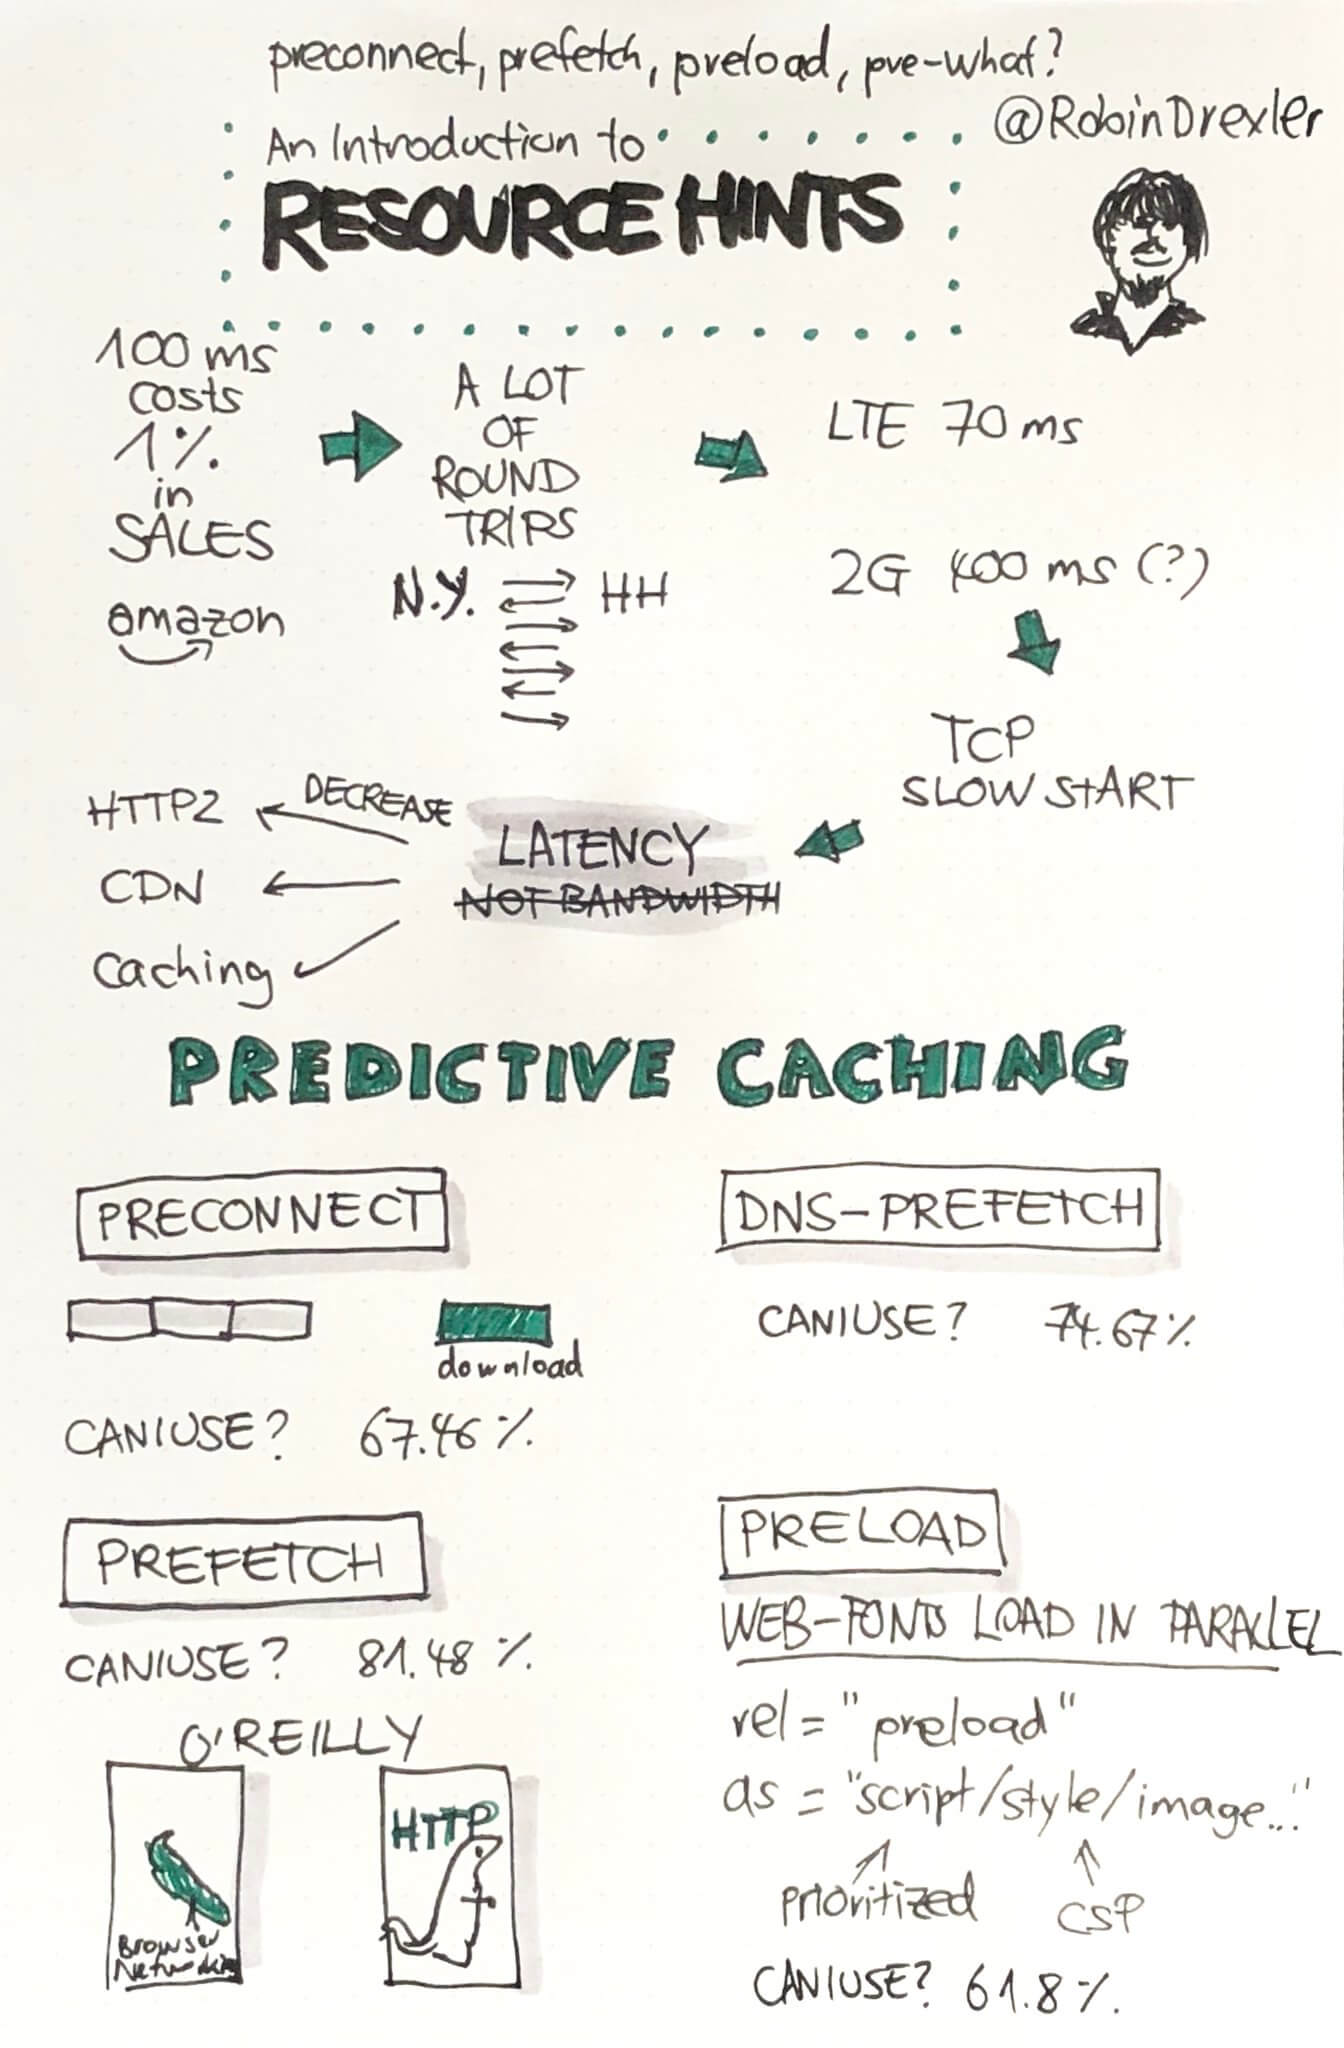 preconnect, prefetch, preload, pre-what?
@RobinDrexler
An Introduction to
RESOURCE HINTS
100 ms
costs
1%
in
SALES
amazon
A LOT
OF
ROUND
TRIPS
N.Y. HH
LTE 70 ms
2G 400 ms (?)
TCP
SLOW START
LATENCY
NOT BANDWIDTH
DECREASE
HTTP2
CDN
Caching
PREDICTIVE CACHING
PRECONNECT
download
CANIUSE? 67.46 %
DNS-PREFETCH
CANIUSE? 74.67%
PREFETCH
CANIUSE? 81.48 %
O'REILLY
Browser
Networking
HTTP
PRELOAD
WEB-FONTS LOAD IN PARALLEL
rel = "preload"
as = "script/style/image..."
prioritized CSP
CANIUSE? 61.8%